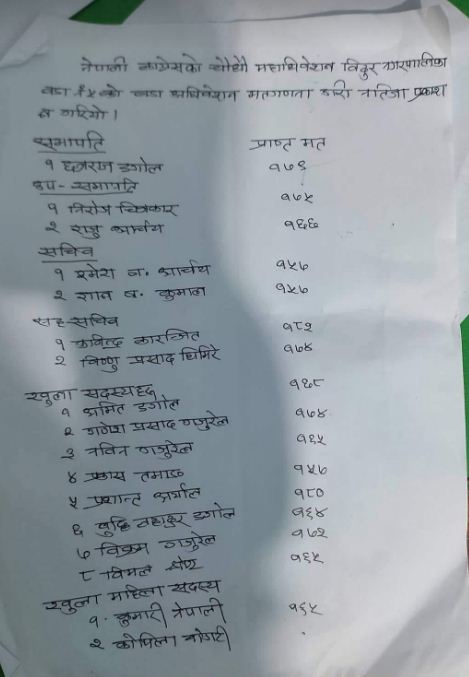 नेपाली कांग्रेसको चौधौं महाधिवेशन विदुर नगरपालिका
वडा नं ४ को वडा अधिवेशन मतगणना गरी नतिजा प्रकाश
न गरियो ।
सभापति प्राप्त मत
१ छत्रराज डंगोल १७६
उप-सभापति
१ निरोज चित्रकार १७५
२ राजु आचार्य १६६
सचिव
१ रमेश ब. आचार्य १५७
२ ज्ञान ब. कुमाल १५७
सह-सचिव
१ कविन्द्र कारञ्जित १८२
२ विष्णु प्रसाद घिमिरे १७४
खुला सदस्यहरु
१ अमित डंगोल १६८
२ गणेश प्रसाद गजुरेल १७४
३ नविन गजुरेल १६५
४ प्रकास तमाङ १५७
५ प्रशान्त अर्याल १८०
६ बुद्धि बहादुर डंगोल १६४
७ विक्रम गजुरेल १७२
८ विमल श्रेष्ठ १६५
खुला महिला सदस्य
१. कुमारी नेपाली १६५
२ कोपिला